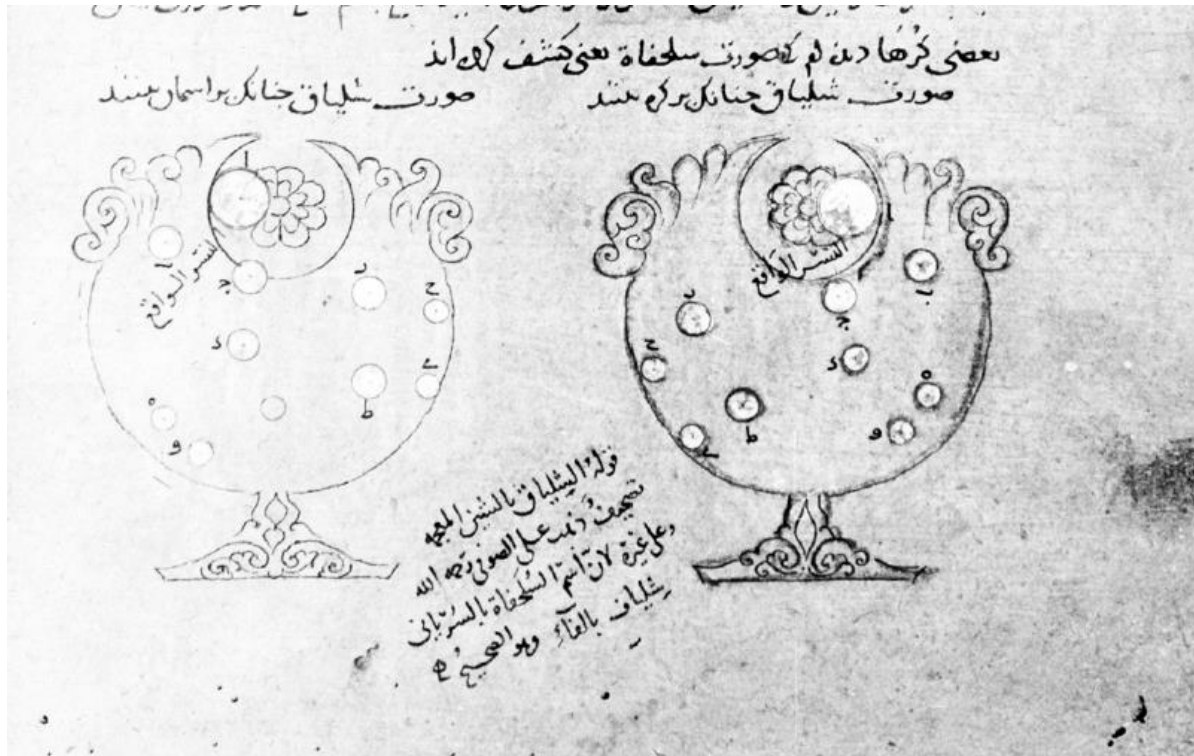 بعضی کرها دیدم که صورت سلحفاة یعنی کشف کرده اند
صورت شلیاق چنانک بر کره بینند
صورت شلیاق چنانک بر اسمان بینند
النسر الواقع
ا
ب
ج
د
ه
و
ر
ح
ط
ی
النسر الواقع
ا
ب
ج
د
ه
و
ر
ح
ط
ی
قوله الشلیاق بالشین المعجمة
تصحیف وقد علی الصوفی رحمه الله
وعلی غیره لان اسم السلحفاة بالسریانی
شلیاف بالفاء وهو الصحیح